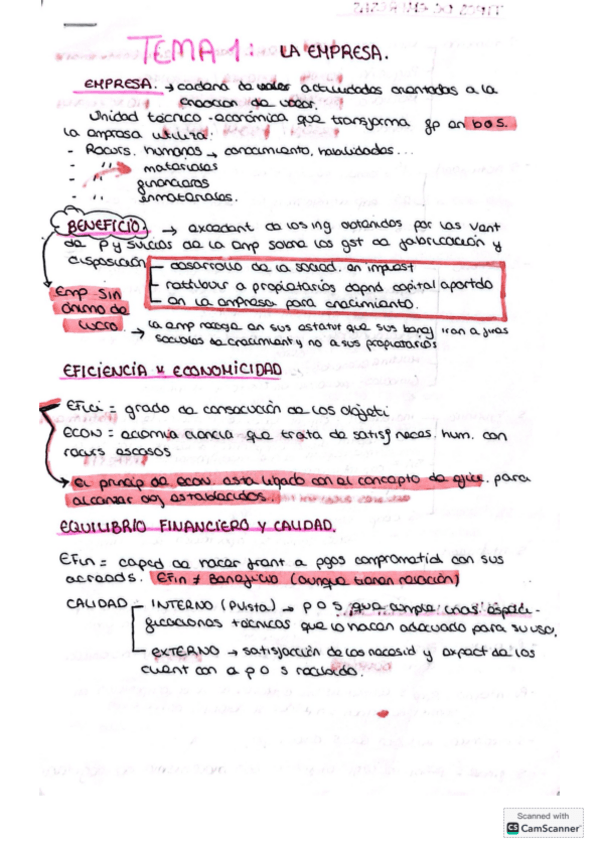 TEMA 1: LA EMPRESA.
EMPRESA. → cadena de valor actividades orientadas a la
creación de valor.
Unidad técnico-económica que transforma fp en b o s.
La empresa utiliza:
- Recurs. humanos → conocimiento, habilidades...
- " materiales
- " financieros
- " inmateriales.
BENEFICIO. → excedent de los ing obtenidos por las vent
de P y Svicios de la emp sobre los gst de fabricación y
disposición
desarrollo de la socied. en impuest
retribuir a propietarios depnd capital aportdo
en la empresa para crecimiento.
Emp sin
ánimo de
lucro.
→ la emp recoge en sus estatut que sus benef iran a fines
sociales de creciment y no a sus propietarios
EFICIENCIA Y ECONOMICIDAD
Efici = grado de consecución de los objeti
ECON = ciencia que trata de satisf neces. hum. con
recurs escasos
→ el princip de econ. esta ligado con el concepto de efici. para
alcanzar obj establecidos.
EQUILIBRIO FINANCIERO Y CALIDAD.
EFin = capcd de hacer frent a pgos comprometid con sus
acreeds. EFin ≠ Beneficio (aunque tienen relación)
CALIDAD - INTERNO (Pvista) → p o s que cumple unas especi-
ficaciones técnicas que lo hacen adecuado para su uso.
EXTERNO → satisfacción de los necesid y expect de los
client con a p o s recibido.
Scanned with
CS CamScanner